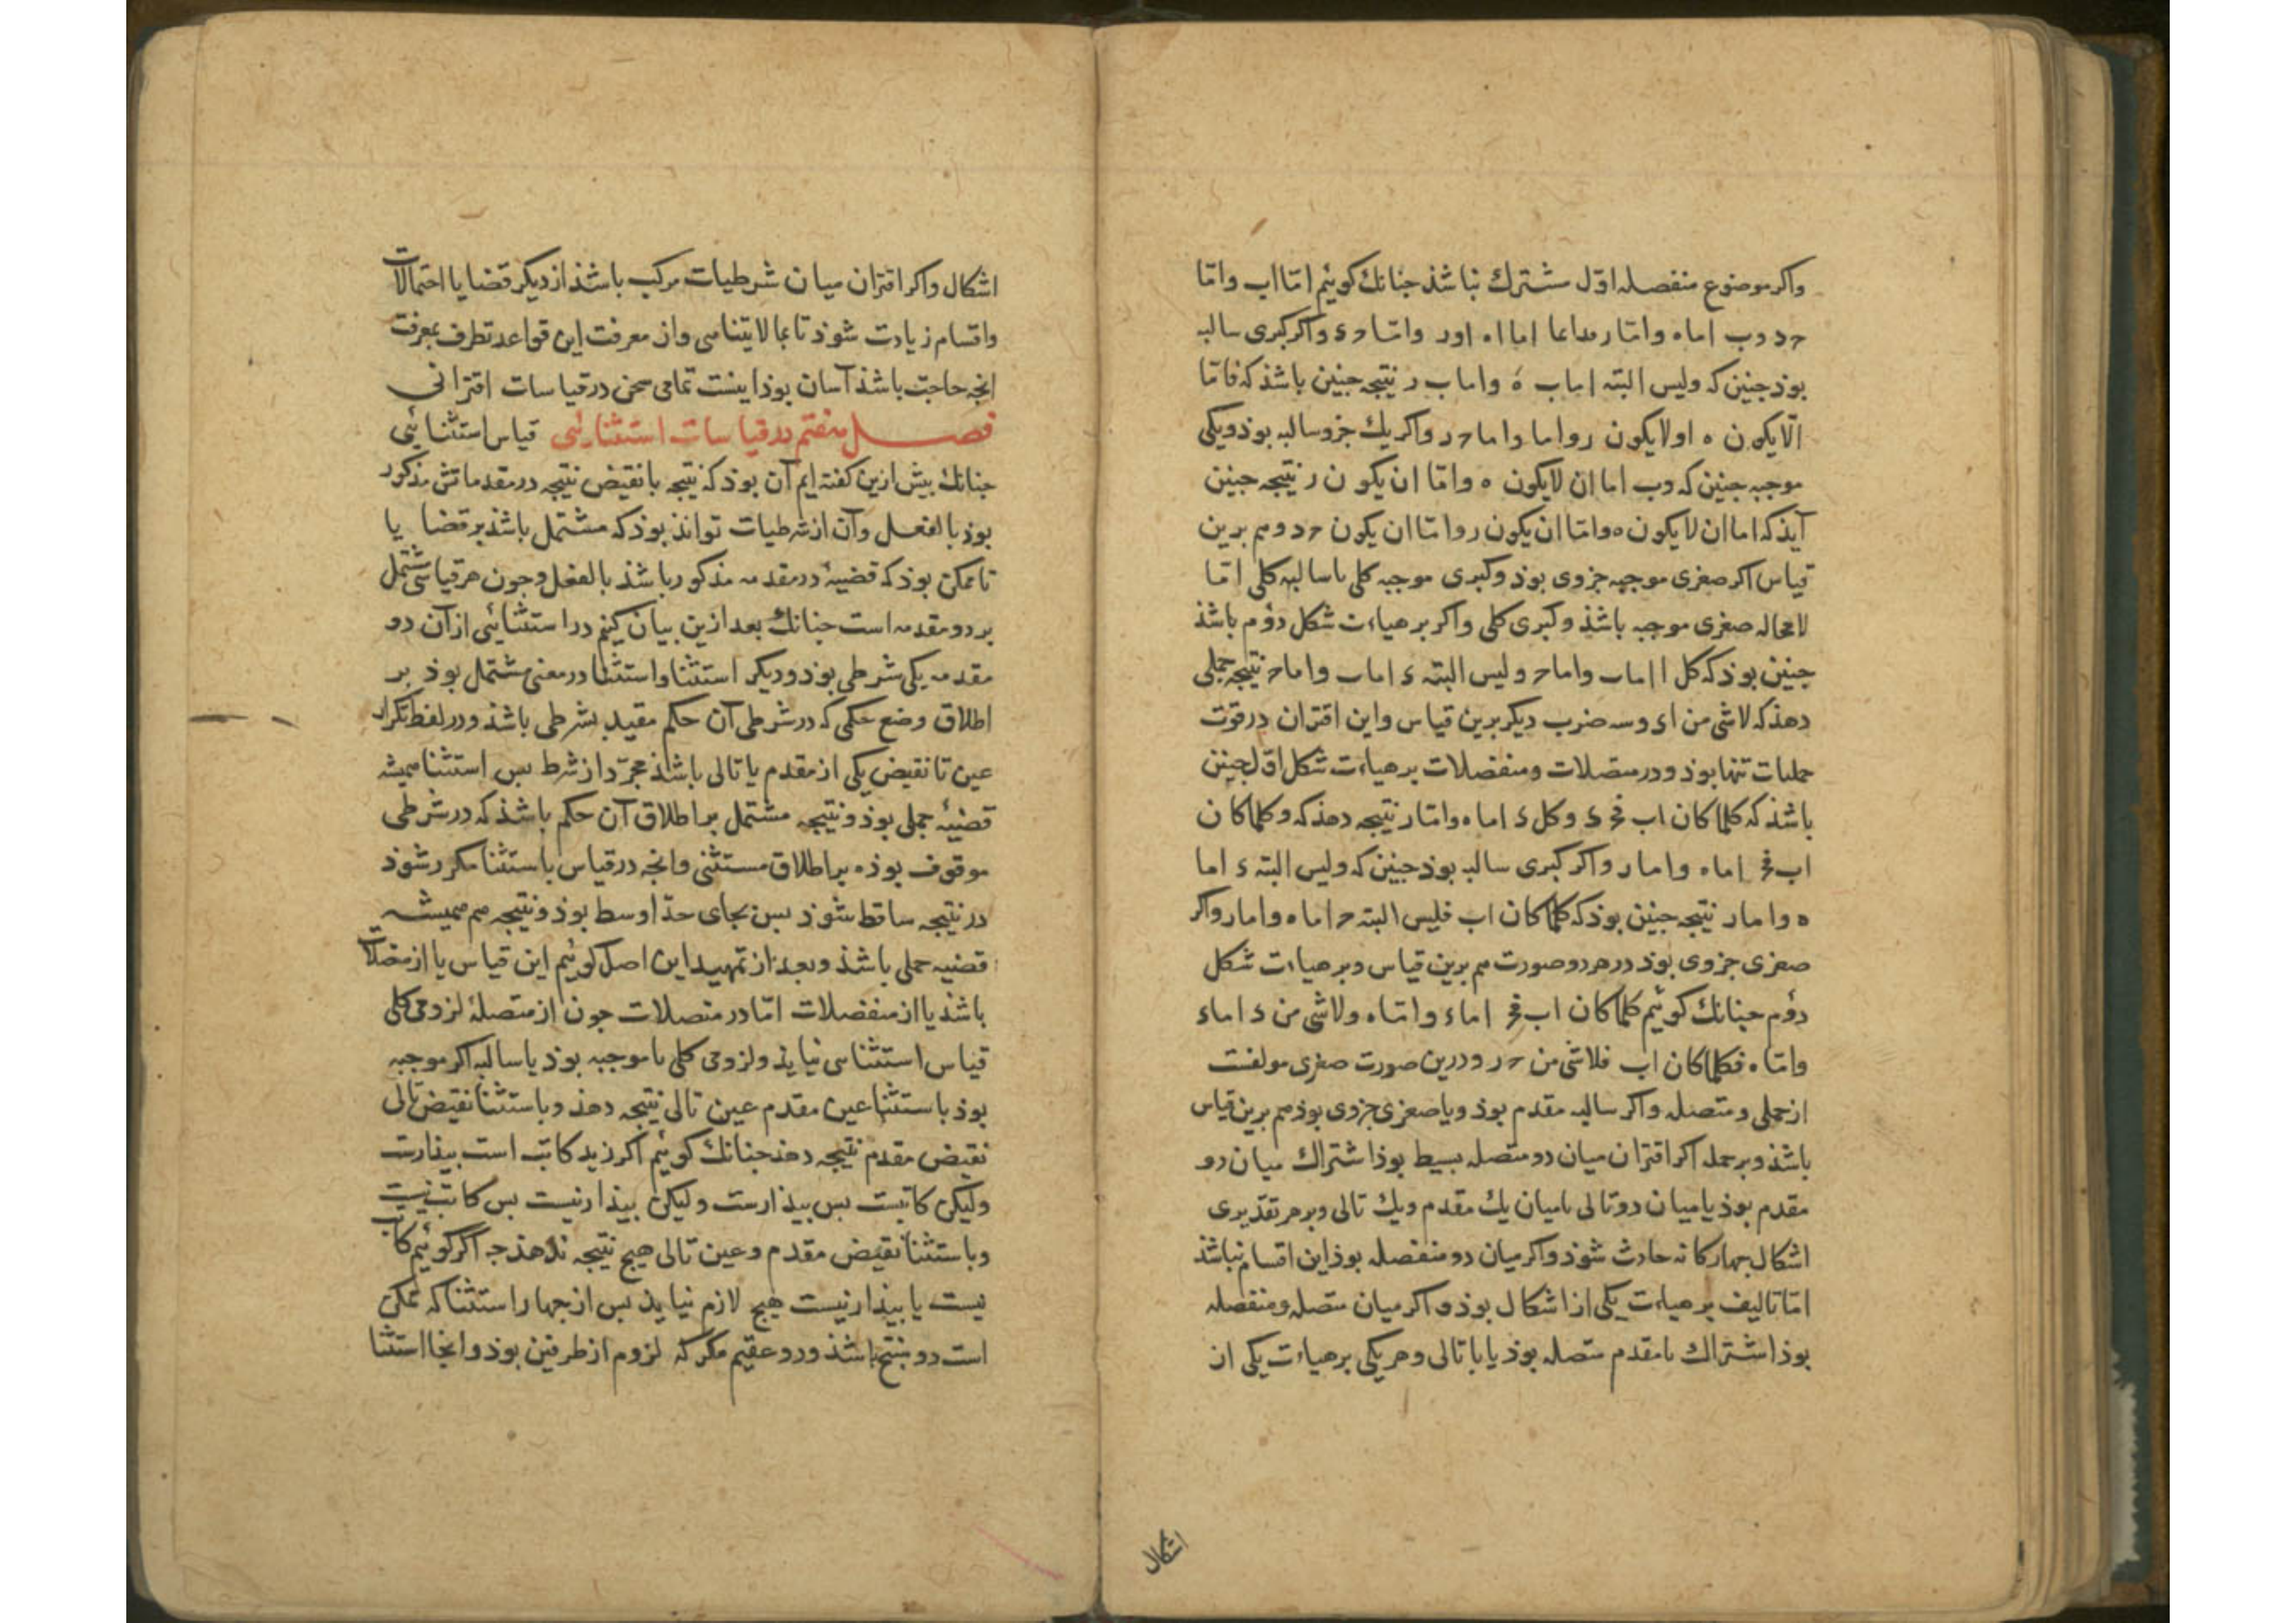 واکر موضوع منفصله اوّل مشترك نباشذ جنانك کوئیم امّا اب وامّا
حد وب اماه وامّا ر مداعا اما اه اور وامّا حء واکر کبری سالبه
بوذ جنین که ولیس البته اماب ه واماب ر نتیجه جنین باشذ که فامّا
الّا یکون ه اولا یکون ر واما واما حر واکر یك جزو سالبه بوذ ویکی
موجبه جنین که دب اما ان لایکون ه وامّا ان یکون ر نتیجه جنین
آیذ که اما ان لا یکون ه وامّا ان یکون ر وامّا ان یکون حد وهم برین
قیاس اکر صغری موجبه جزوی بوذ وکبری موجبه کلی یا سالبه کلی امّا
لامحاله صغری موجبه باشذ وکبری کلی واکر بر هیاءت شکل دوُم باشذ
جنین بوذ که کل ا اماب واماح ولیس البته ء اماب واماح نتیجه حملی
دهذ که لاشی من اء وسه ضرب دیکر برین قیاس واین اقتران در قوت
حملیات تنها بوذ ودر متصلات ومنفصلات بر هیاءت شکل اوّل جنین
باشذ که کلما کان اب فحء وکل ء اماه وامّا ر نتیجه دهذ که وکلما کان
اب فح اماه واما ر واکر کبری سالبه بوذ جنین که ولیس البته ء اما
ه واما ر نتیجه جنین بوذ که کلما کان اب فلیس البته ح اماه واما ر واکر
صغری جزوی بوذ در هر دو صورت هم برین قیاس وبر هیاءت شکل
دوُم جنانك کوئیم کلما کان اب فح اماء وامّا ه ولاشی من ء اماء
وامّا ه فکلما کان اب فلاشی من حر ودرین صورت صغری مولفست
از حملی ومتصله واکر سالبه مقدم بوذ ویا صغری جزوی بوذ هم برین قیاس
باشذ وبر جمله اکر اقتران میان دو متصله بسیط بوذ اشتراك میان دو
مقدم بوذ یا میان دو تالی یا میان یك مقدم ویك تالی وبر هر تقدیری
اشکال جهارکانه حادث شوذ واکر میان دو منفصله بوذ این اقسام نباشذ
امّا تالیف بر هیاءت یکی از اشکال بوذ واکر میان متصله ومنفصله
بوذ اشتراك با مقدم متصله بوذ یا با تالی وهر یکی بر هیاءت یکی از
اشکال
اشکال واکر اقتران میان شرطیات مرکب باشذ از دیکر قضایا احتمالات
واقسام زیادت شوذ تا بما لا یتناهی واز معرفت این قواعد تطرف بمعرفت
انجه حاجت باشذ آسان بوذ اینست تمامی سخن در قیاسات اقترانی
فصل هفتم در قیاسات استثنائی قیاس استثنائی
جنانك بیش ازین کفته ایم آن بوذ که نتیجه یا نقیض نتیجه در مقدماتش مذکور
بوذ بالفعل وآن از شرطیات تواند بوذ که مشتمل باشذ بر قضایا
تا ممکن بوذ که قضیهٔ در مقدمه مذکور باشذ بالفعل وجون هر قیاسی مشتمل
بر دو مقدمه است جنانك بعد ازین بیان کنیم در استثنائی از آن دو
مقدمه یکی شرطی بوذ ودیکر استثنا واستثنا در معنی مشتمل بوذ بر
اطلاق وضع حکمی که در شرطی آن حکم مقید بشرطی باشذ ودر لفظ تکرار
عین تا نقیض یکی از مقدم یا تالی باشذ مجرّد از شرط بس استثنا همیشه
قضیهٔ حملی بوذ ونتیجه مشتمل بر اطلاق آن حکم باشذ که در شرطی
موقوف بوذه بر اطلاق مستثنی وانجه در قیاس باستثنا مکرر شوذ
در نتیجه ساقط شوذ بس بجای حدّ اوسط بوذ ونتیجه هم همیشه
قضیه حملی باشذ وبعد از تمهید این اصل کوئیم این قیاس یا از متصلات
باشذ یا از منفصلات امّا در متصلات جون از متصلهٔ لزومی کلی
قیاس استثنایی نیایذ ولزومی کلی یا موجبه بوذ یا سالبه اکر موجبه
بوذ باستثنا عین مقدم عین تالی نتیجه دهذ وباستثنا نقیض تالی
نقیض مقدم نتیجه دهذ جنانك کوئیم اکر زید کاتب است بیذارست
ولیکن کاتبست بس بیذارست ولیکن بیذار نیست بس کاتب نیست
وباستثنا نقیض مقدم وعین تالی هیج نتیجه ندهذ جه اکر کوئیم کاتب
نیست یا بیذار نیست هیج لازم نیایذ بس از جهار استثنا که ممکن
است دو منتج باشذ ودو عقیم مکر که لزوم از طرفین بوذ وانجا استثنا